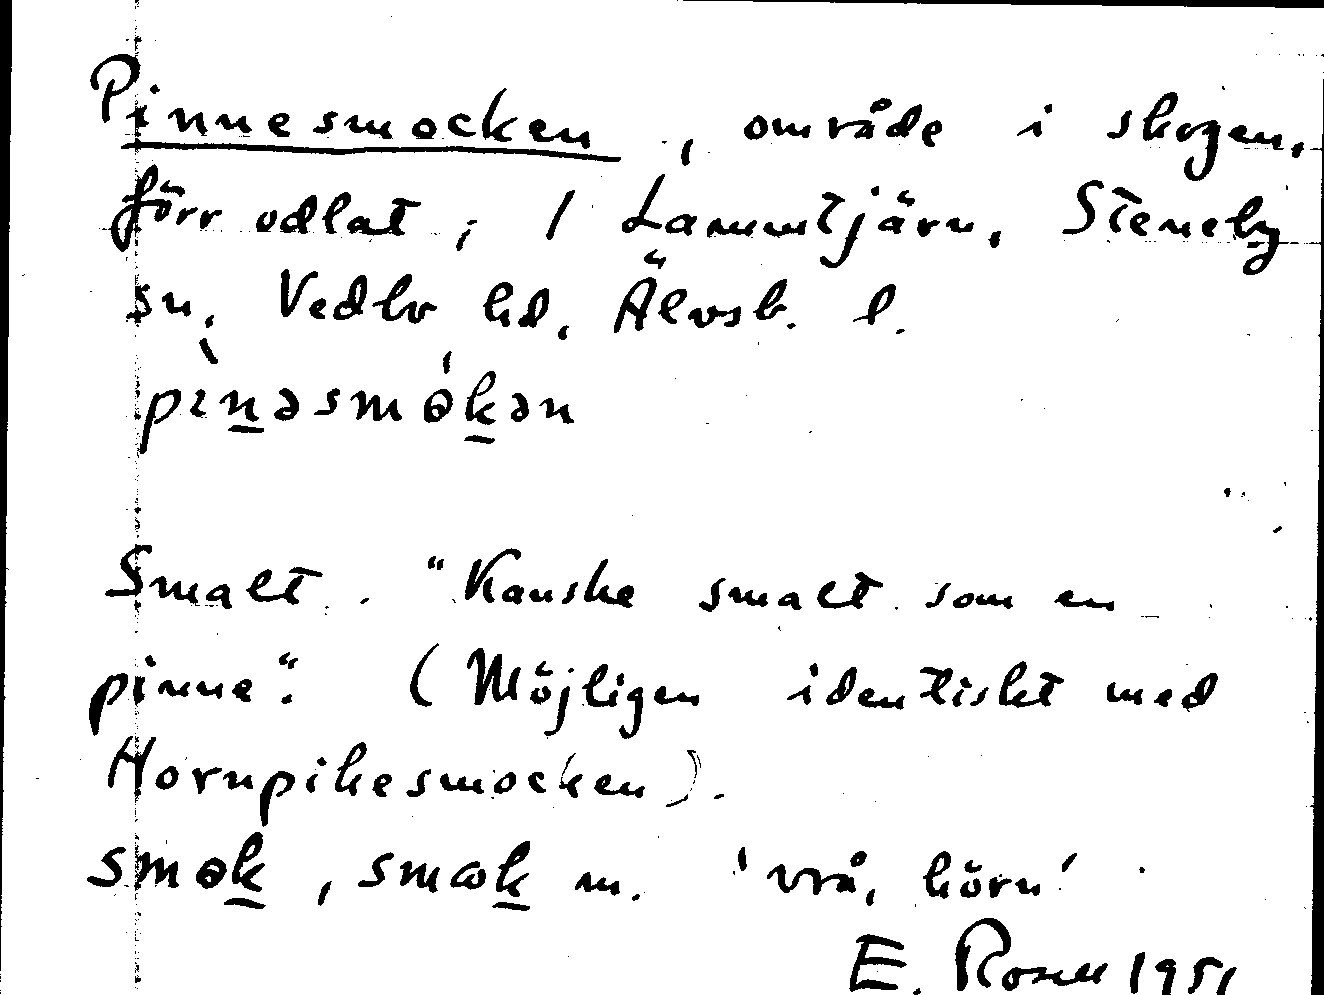 Pinnesmocken, område i skogen,
förr odlat; 1 Lammtjärn, Steneby
sn, Vedbo hd, Älvsb. l.
pìn̲əsmɵ́k̲ən
Smalt. "Kanske smalt som en
pinne". (Möjligen identiskt med
Hornpikesmocken).
smɵk̲, smɷk̲ m. 'vrå, hörn'
E. Rosell 1951